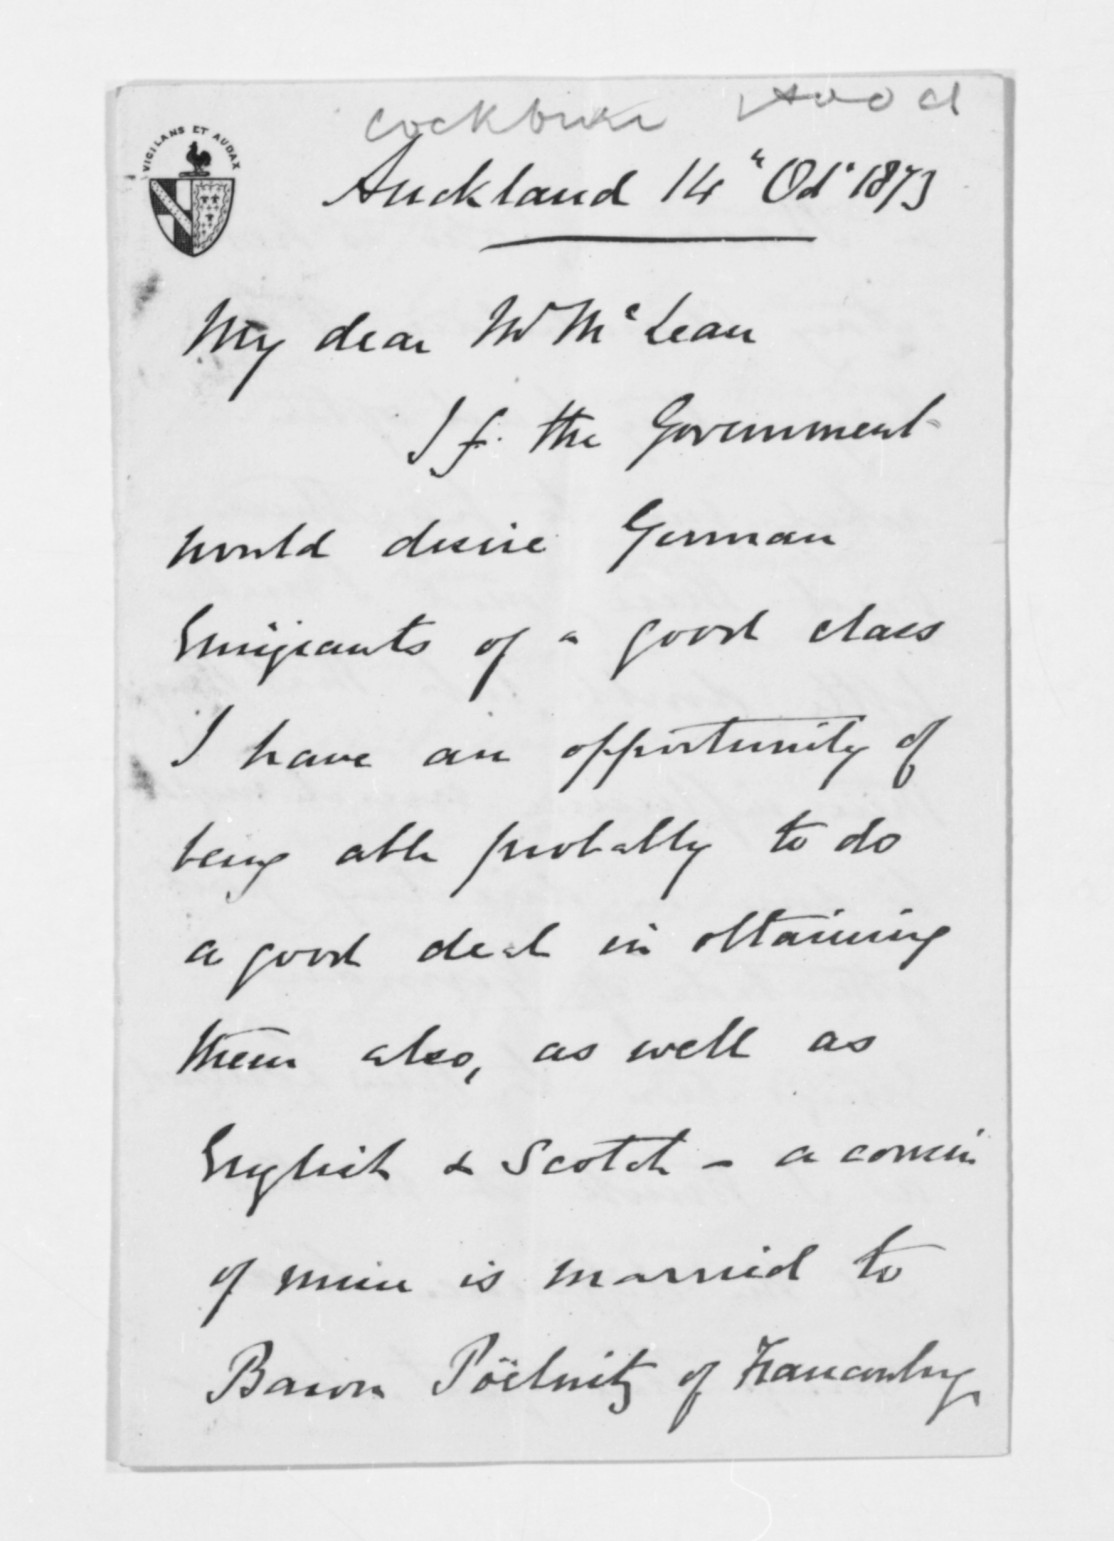 VIGILANS ET AUDAX
Cockburn Hood
Auckland 14th Oct 1873
My dear Mr McLean
If the Government
would desire German
Emigrants of a good class
I have an opportunity of
being able probably to do
a good deal in obtaining
them also, as well as
English & Scotch - a cousin
of mine is married to
Baron Pöelnitz of